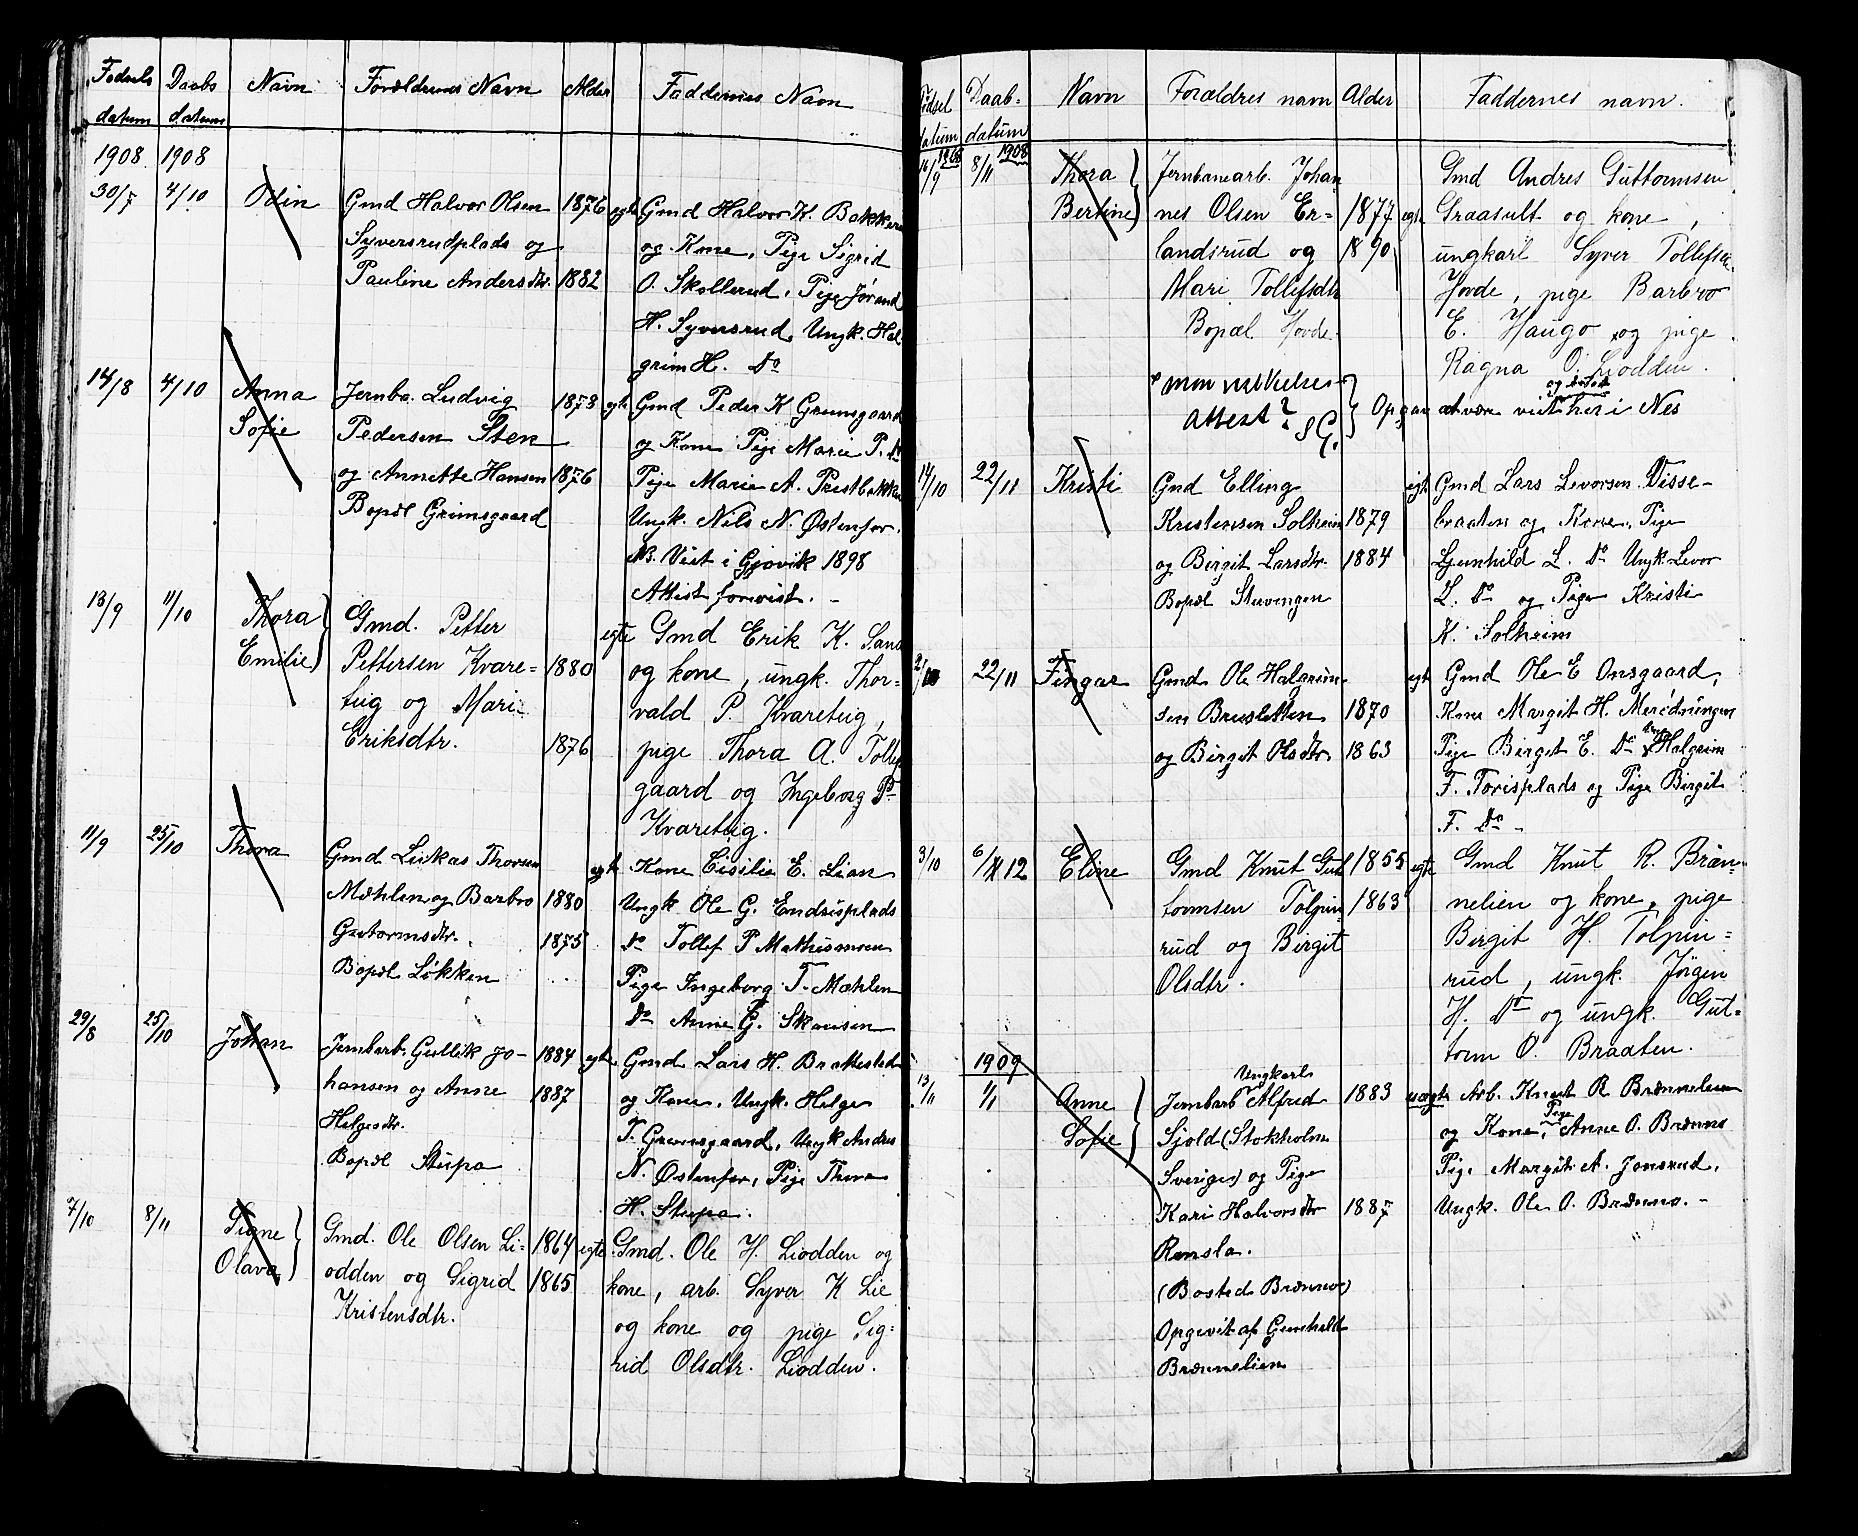 Fødsels datum Daabs datum Navn Forældrenes Navn Alder Faddernes Navn
1908 1908
30/7 4/10 Odin Gmd Halvor Olsen 1876 egte Gmd Halvor K. Bakken
Syversrudplads og og Kone, Pige Sigrid
Pauline Andersdtr. 1882 O. Skollerud, Pige Jørand
H. Syversrud, Ungk. Hal
grim H. Do
14/8 4/10 Anna Jernba. Ludvig 1873 egte Gmd Peder K Grimsgaard
Sofie Pedersen Sten og Kone Pige Marie P. do
og Annette Hansen 1876 Pige Marie A. Prestbakke
Bopæl Grimsgaard Ungk. Nils N. Østenfor.
NB. Viet i Gjøvik 1898
Attest forevist. -
13/9 11/10 Thora Gmd. Petter egte Gmd Erik K. Sand
Emilie Pettersen Kvare= 1880 og kone, ungk. Thor=
tug og Mari vald P. Kvaretug,
Eriksdtr. 1876 pige Thora A. Tolle
gaard og Ingeborg P.
Kvaretug.
11/9 25/10 Thora Gmd Lukas Thorsen egte Kone Cisilie E. Lian
Mæhlen og Barbro 1880 Ungk Ole G. Endrisplads
Guttormsdtr. 1875 do Tollef P Mathismoen
Bopæl Løkken Pige Ingeborg T. Mæhlen
Do Anne G. Skousen
29/8 25/10 Johan Jernbarb. Gullik Jo- 1884 egte Gmd Lars H. Brattested
hansen og Anne 1887 og Kone, Ungk. Helge
Helgesdtr. T. Grimsgaard, Ungk Andres
Bopæl Stupa N. Østenfor, Pige Thora
H. Stupa.
7/10 8/11 Signe Gmd. Ole Olsen Li= 1864 egte Gmd. Ole H. Liodden og
Olava odden og Sigrid 1865 kone, arb. Syver K Lie
Kristensdtr. og kone og pige Sig=
rid Olsdtr. Liodden.
Fødsel datum Daab. datum Navn Forældres navn Alder Faddernes navn.
1908 1908
16/9 8/11 Thora Jernbanearb. Johan Gmd Andres Guttormsen
Bertine nes Olsen Er= 1877 egte Graasult og kone,
landsrud og 1890 ungkarl Syver Tollefsen
Mari Tollefsdtr Hovde, pige Barbro
Bopæl Hovde. E. Haugo og pige
Ragna O. Liodden.
mon vielses
attest? SG. Opgav at være viet her i Nes
14/10 22/11 Kristi Gmd Elling egte Gmd Lars Levorsen Disse-
Kristensen Solheim 1879 braaten og Kone, Pige
og Birgit Larsdtr. 1884 Gunhild L. Do Ungk. Levor
Bopæl Stavengen L. Do og Pige Kristi
K. Solheim
22/11 Fingar Gmd. Ole Halgrim- egte Gmd Ole E Onsgaard,
sen Brusletten 1870 Kone Margit H.
og Birgit Olsdtr. 1863 Pige Birgit E. Do Halgrim
F. Torisplads og Pige Birgit
F. Do -
3/10 6/12 Eline Gmd Knut Gut 1855 egte Gmd Knut R. Bræn-
tormsen Tolpin 1863 nelien og kone, pige
rud og Birgit Birgit H. Tolpin=
Olsdtr. rud, ungk. Jörgen
H. Do og ungk. Gut=
torm O. Braaten.
1909
13/11 1/1 Anne Ungkarl Jernbarb Alfred 1883 uegte Arb. Knut R Brænnelien
Sofie Sjold (Stokholm og Kone, Pige Anne O. Brænno
Sverige) og Pige Pige Margit A. Jonsrud,
Kari Halvorsdtr 1887 Ungk. Ole O. Brænno. -
Rensla.
(Bosted Brænno)
Opgevit af Gunhild
Brænnelien